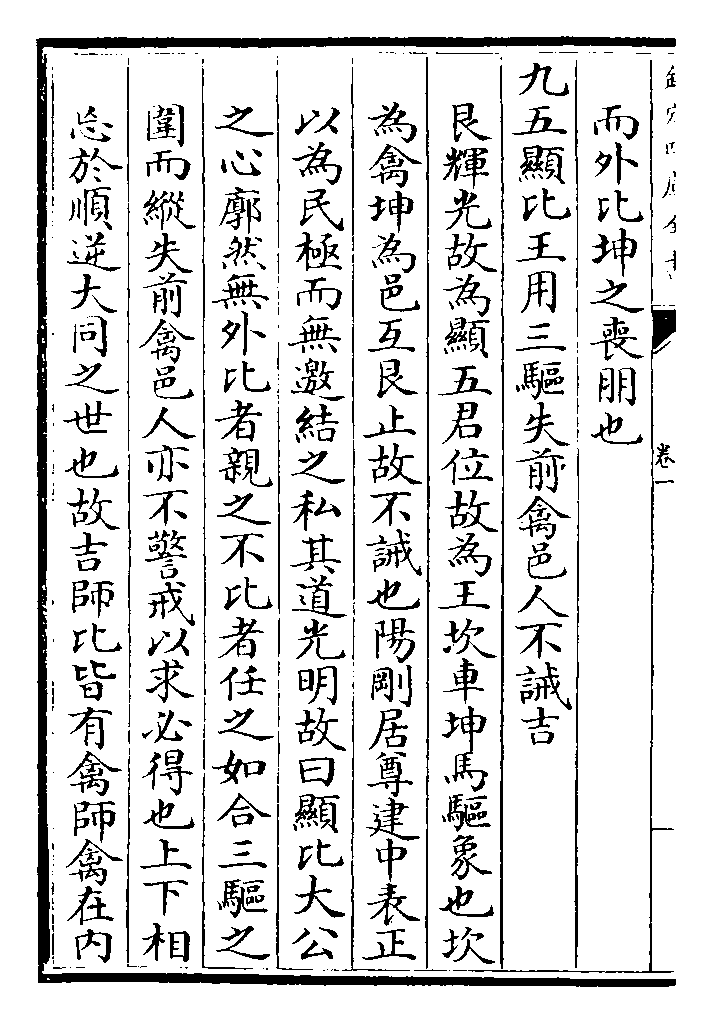 欽定四庫全書
卷一
而外比坤之喪朋也
九五顯比王用三驅失前禽邑人不誡吉
艮輝光故為顯五君位故為王坎車坤馬驅象也坎
為禽坤為邑互艮止故不誡也陽剛居尊建中表正
以為民極而無邀結之私其道光明故曰顯比大公
之心廓然無外比者親之不比者任之如合三驅之
圍而縱失前禽邑人亦不警戒以求必得也上下相
忘於順逆大同之世也故吉師比皆有禽師禽在内